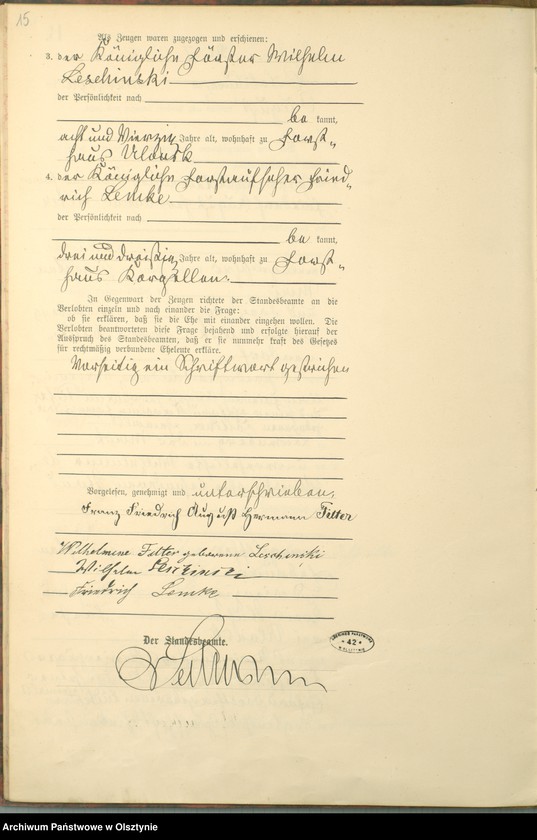 15
Als Zeugen waren zugezogen und erschienen:
3. der Königliche Förster Wilhelm
Leschinski
der Persönlichkeit nach
be kannt,
acht und Vierzig Jahre alt, wohnhaft zu Forst„
haus Ulonsk
4. der Königliche Forstaufseher Fried„
rich Lemke
der Persönlichkeit nach
be kannt,
drei und dreißig Jahre alt, wohnhaft zu Forst„
haus Korpellen.
In Gegenwart der Zeugen richtete der Standesbeamte an die
Verlobten einzeln und nach einander die Frage:
ob sie erklären, daß sie die Ehe mit einander eingehen wollen. Die
Verlobten beantworteten diese Frage bejahend und erfolgte hierauf der
Ausspruch des Standesbeamten, daß er sie nunmehr kraft des Gesetzes
für rechtmäßig verbundene Eheleute erkläre.
Vorseitig ein Schriftwort gestrichen
Vorgelesen, genehmigt und unterschrieben:
Franz Friedrich August Hermann Fetter
Wilhelmine Fetter geborene Leschinski
Wilhelm Leschinski
Friedrich Lemke
Der Standesbeamte.
42
Archiwum Państwowe w Olsztynie